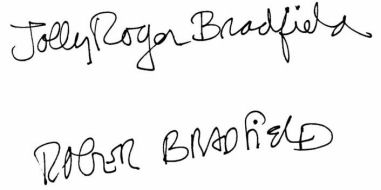 Jolly Roger Bradfield
ROGER BRADfiElD